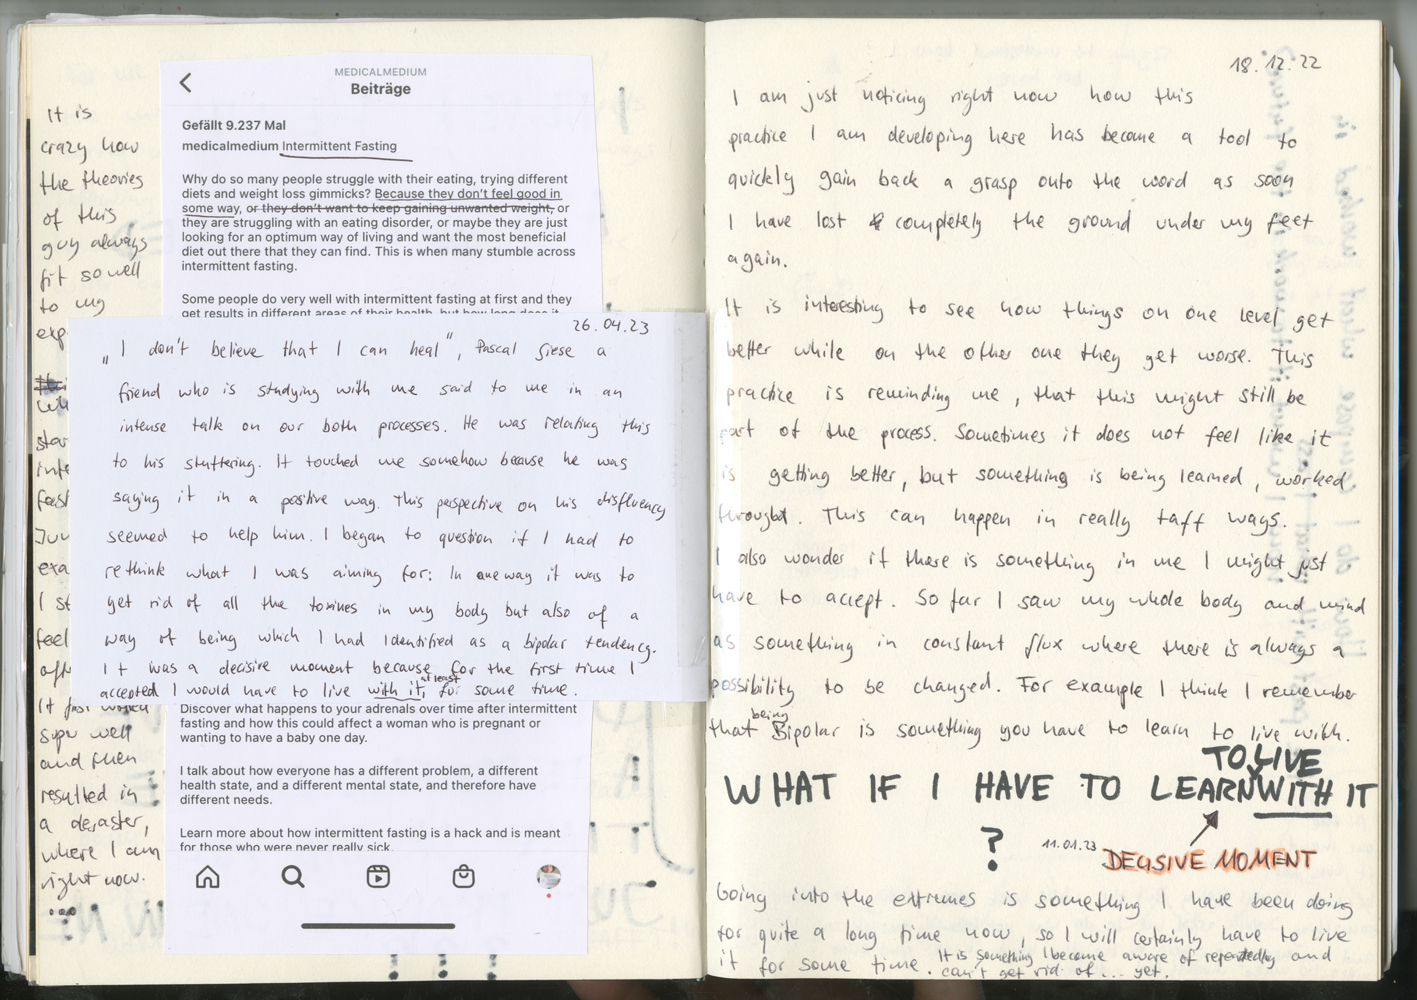 It is
crazy how
the theories
of this
guy always
fit so well
to my
exp
wh
star
inte
fast
Jun
exa
I st
feel
aft
It just worked
super well
and then
resulted in
a desaster,
where I am
right now.
...
MEDICALMEDIUM
Beiträge
Gefällt 9.237 Mal
medicalmedium Intermittent Fasting
Why do so many people struggle with their eating, trying different
diets and weight loss gimmicks? Because they don't feel good in
some way, or they don't want to keep gaining unwanted weight, or
they are struggling with an eating disorder, or maybe they are just
looking for an optimum way of living and want the most beneficial
diet out there that they can find. This is when many stumble across
intermittent fasting.
Some people do very well with intermittent fasting at first and they
get results in different areas of their health, but how long does it
26.04.23
„I don't believe that I can heal", Pascal Giese a
friend who is studying with me said to me in an
intense talk on our both processes. He was relating this
to his stuttering. It touched me somehow because he was
saying it in a positive way. This perspective on his disfluency
seemed to help him. I began to question if I had to
rethink what I was aiming for: In one way it was to
get rid of all the toxines in my body but also of a
way of being which I had Identified as a bipolar tendency.
It was a decisive moment because for the first time I
accepted I would have to live with it, at least for some time.
Discover what happens to your adrenals over time after intermittent
fasting and how this could affect a woman who is pregnant or
wanting to have a baby one day.
I talk about how everyone has a different problem, a different
health state, and a different mental state, and therefore have
different needs.
Learn more about how intermittent fasting is a hack and is meant
for those who were never really sick.
18.12.22
I am just noticing right now how this
practice I am developing here has become a tool to
quickly gain back a grasp onto the word as soon
I have lost completely the ground under my feet
again.
It is interesting to see how things on one level get
better while on the other one they get worse. This
practice is reminding me, that this might still be
part of the process. Sometimes it does not feel like it
is getting better, but something is being learned, worked
throught. This can happen in really taff ways.
I also wonder if there is something in me I might just
have to accept. So far I saw my whole body and mind
as something in constant flux where there is always a
possibility to be changed. For example I think I remember
that being Bipolar is something you have to learn to live with.
WHAT IF I HAVE TO LEARN TO LIVE WITH IT
?
11.01.23 DECISIVE MOMENT
Going into the extremes is something I have been doing
for quite a long time now, so I will certainly have to live
it for some time. It is something I become aware of repeatedly and
can't get rid of ... yet.